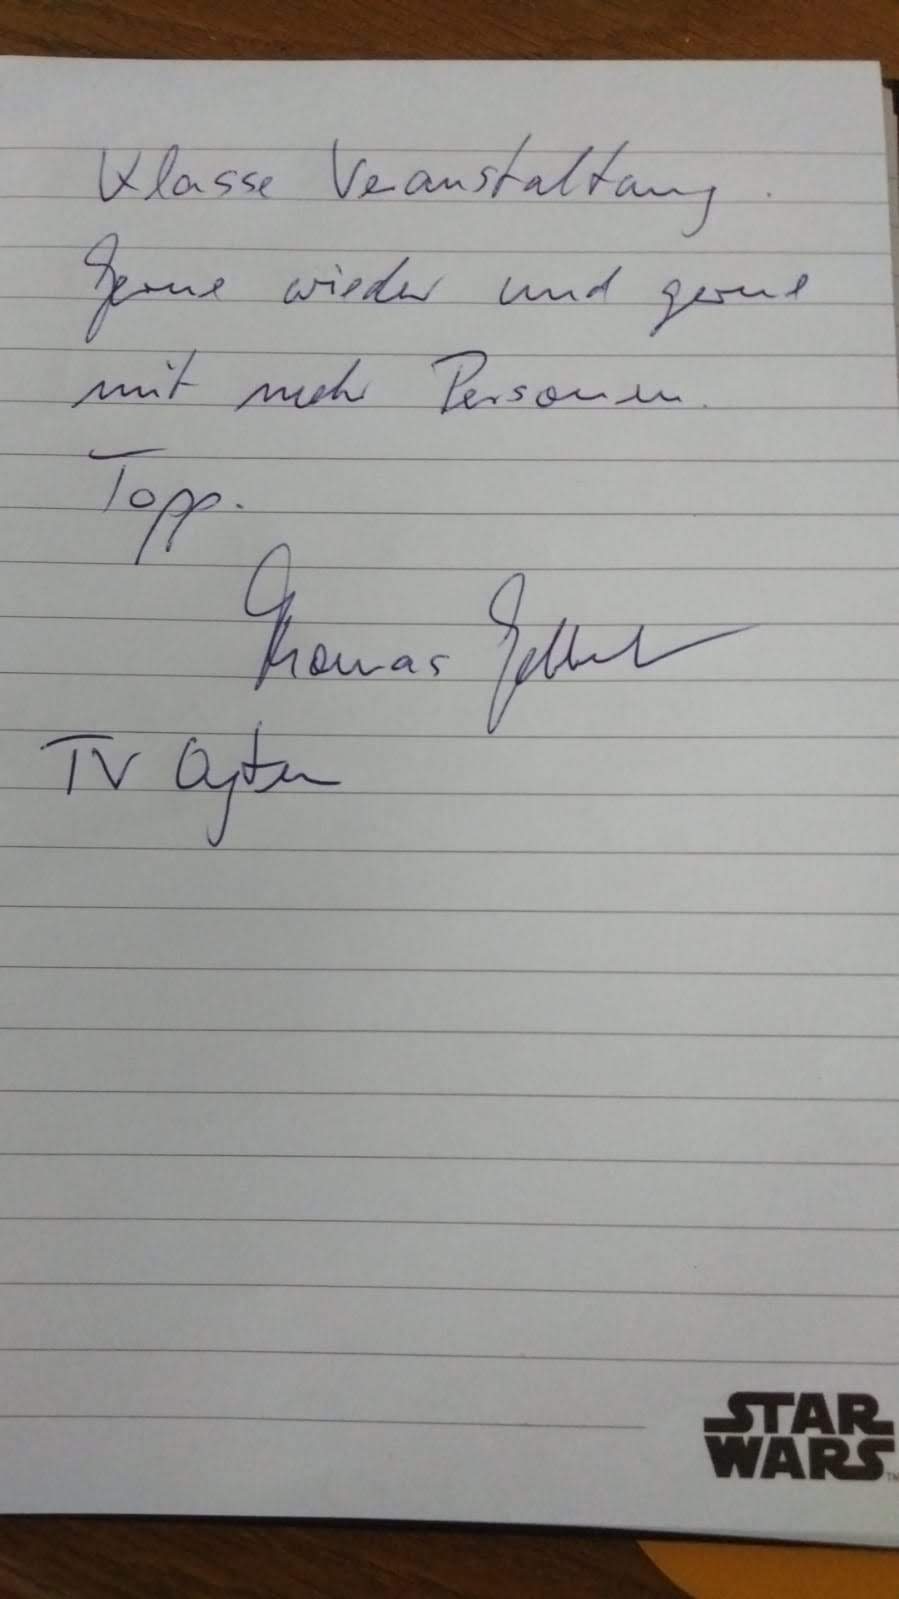 Klasse Veranstaltung.
Gerne wieder und gerne
mit mehr Personen.
Topp.
Thomas
TV Oyten
STAR
WARS
TM